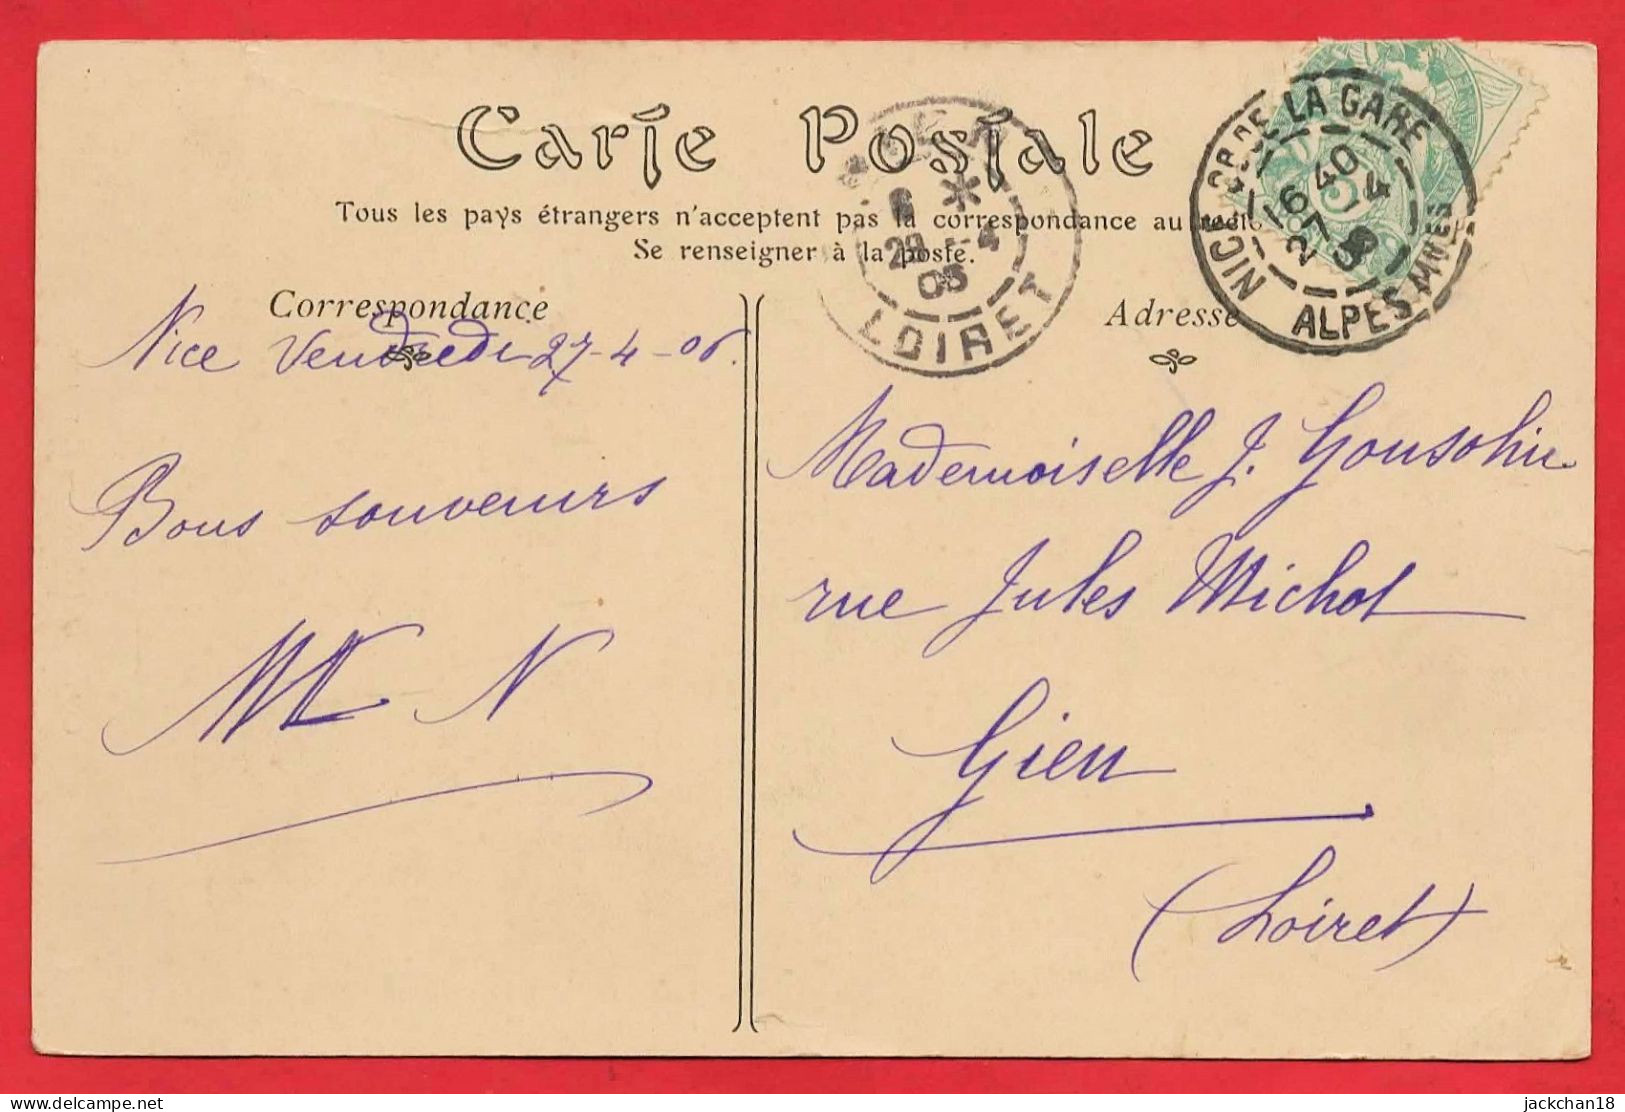 Carte Postale
Tous les pays étrangers n'acceptent pas la correspondance au recto
Se renseigner à la poste.
Correspondance
Adresse
NICE LA GARE
16 40
27 4
ALPES MMES
6 *
28 - 4
LOIRET
Nice Vendredi 27-4-06.
Bons souvenirs
N
Mademoiselle J.
rue Jules Michot
Gien
(Loiret)
jackchan18